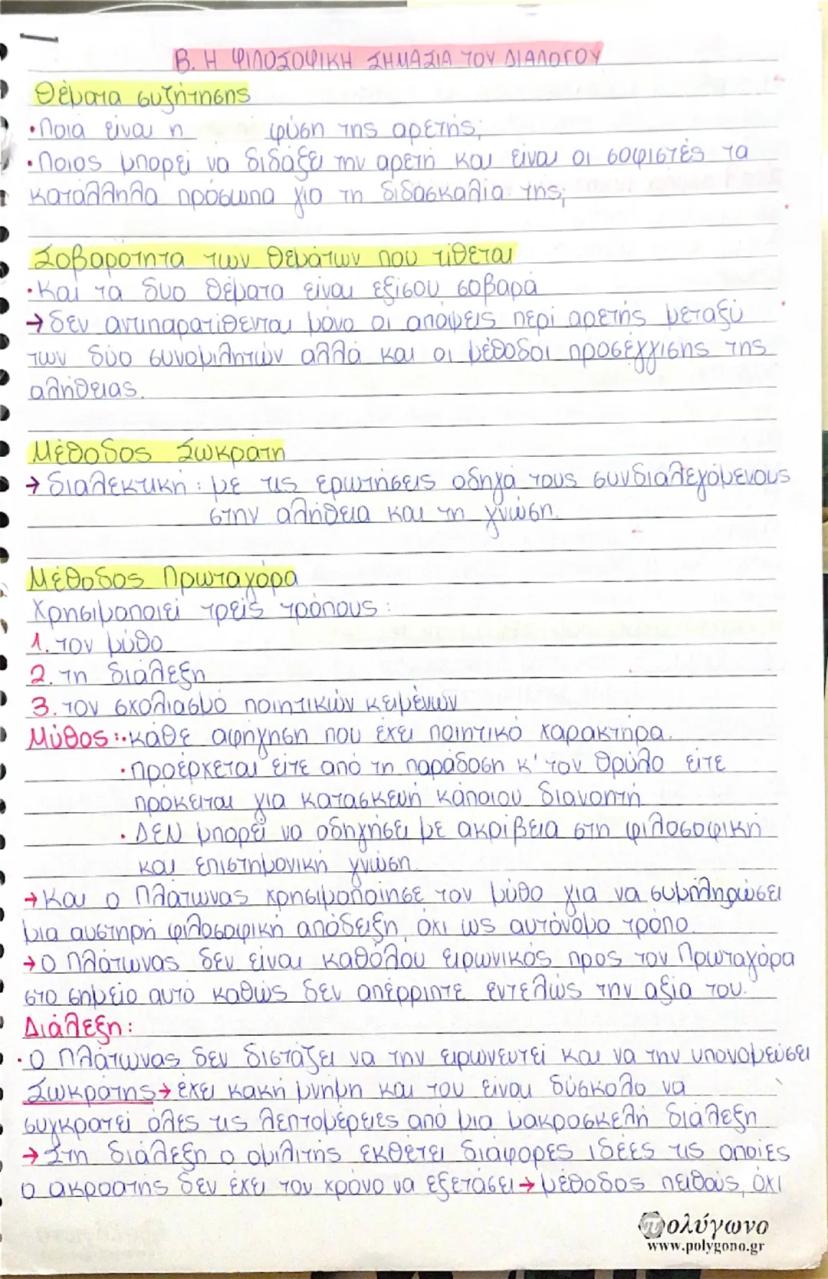 Β. Η ΦΙΛΟΣΟΦΙΚΗ ΣΗΜΑΣΙΑ ΤΟΥ ΔΙΑΛΟΓΟΥ
Θέματα συζήτησης
•Ποια είναι η φύση της αρετής;
•Ποιος μπορεί να διδάξει την αρετή και είναι οι σοφιστές τα
κατάλληλα πρόσωπα για τη διδασκαλία της;
Σοβαρότητα των θεμάτων που τίθεται
•Και τα δυο θέματα είναι εξίσου σοβαρά
→δεν αντιπαρατίθενται μόνο οι απόψεις περί αρετής μεταξύ
των δύο συνομιλητών αλλά και οι μέθοδοι προσέγγισης της
αλήθειας.
Μέθοδος Σωκράτη
→διαλεκτική: με τις ερωτήσεις οδηγά τους συνδιαλεγόμενους
στην αλήθεια και τη γνώση.
Μέθοδος Πρωταγόρα
Χρησιμοποιεί τρεις τρόπους:
1. τον μύθο
2. τη διάλεξη
3. τον σχολιασμό ποιητικών κειμένων
Μύθος:•κάθε αφήγηση που έχει ποιητικό χαρακτήρα.
•προέρχεται είτε από τη παράδοση κ' τον θρύλο είτε
πρόκειται για κατασκευή κάποιου διανοητή
•ΔΕΝ μπορεί να οδηγήσει με ακρίβεια στη φιλοσοφική
και επιστημονική γνώση.
→Και ο Πλάτωνας χρησιμοποίησε τον μύθο για να συμπληρώσει
μια αυστηρή φιλοσοφική απόδειξη, όχι ως αυτόνομο τρόπο.
→Ο Πλάτωνας δεν είναι καθόλου ειρωνικός προς τον Πρωταγόρα
στο σημείο αυτό καθώς δεν απέρριπτε εντελώς την αξία του.
Διάλεξη:
•Ο Πλάτωνας δεν διστάζει να την ειρωνευτεί και να την υπονομεύσει
Σωκράτης→έχει κακή μνήμη και του είναι δύσκολο να
συγκρατεί όλες τις λεπτομέρειες από μια μακροσκελή διάλεξη
→Στη διάλεξη ο ομιλιτής εκθέτει διάφορες ιδέες τις οποίες
ο ακροατής δεν έχει τον χρόνο να εξετάσει→μέθοδος πειθούς, όχι
πολύγωνο
www.polygono.gr